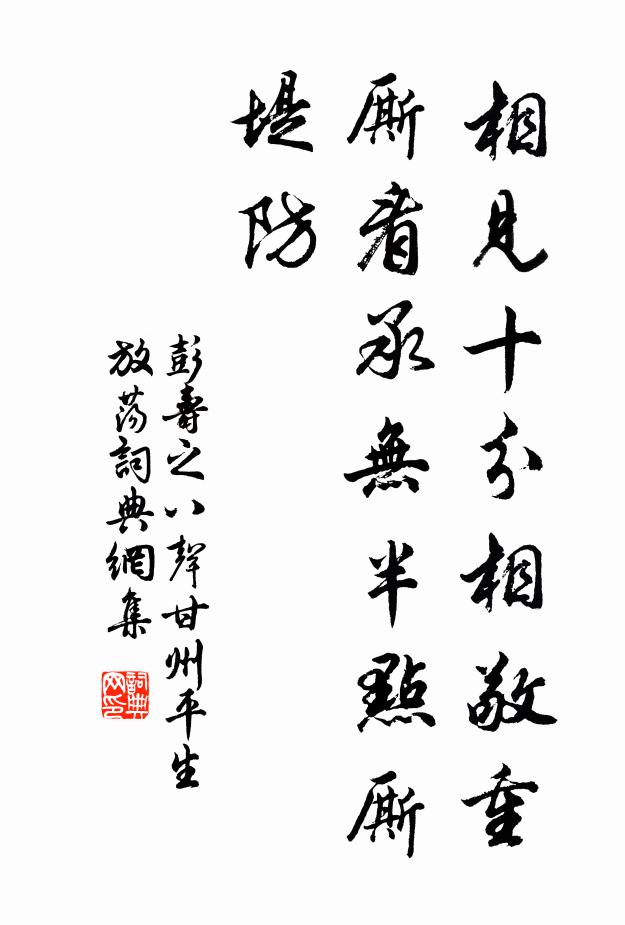 相見十分相敬重
廝看承無半點廝
堤防
彭壽之八聲甘州平生
放蕩詞典網集
詞典
网印